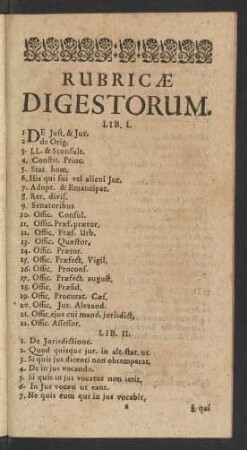 RUBRICÆ
DIGESTORUM.
LIB. I.
1 DE Just. & Jur.
2 de Orig.
3. LL. & Sconsult.
4. Constit. Princ.
5. Stat. hom.
6. His qui sui vel alieni Jur.
7. Adopt. & Emancipat.
8. Rer. divis.
9. Senatoribus
10. Offic. Consul.
11. Offic. Præf. prætor.
12. Offic. Præf. Urb.
13. Offic. Quæstor.
14. Offic. Prætor.
15. Offic. Præfect. Vigil.
16. Offic. Proconf.
17. Offic. Præfect. august.
18. Offic. Præsid.
19. Offic. Procurat. Cæs.
20. Offic. Jur. Alexand.
21. Offic. ejus cui mand. jurisdict.
22. Offic. Assessor.
LIB. II.
1. De Jurisdictione.
2. Quod quisque jur. in alt. stat. ut.
3. Si quis jus dicenti non obtemperat.
4. De in jus vocando.
5. Si quis in jus vocatus non ierit,
6. In Jus vocati ut eant.
7. Ne quis eum qui in jus vocabit,
8. qui